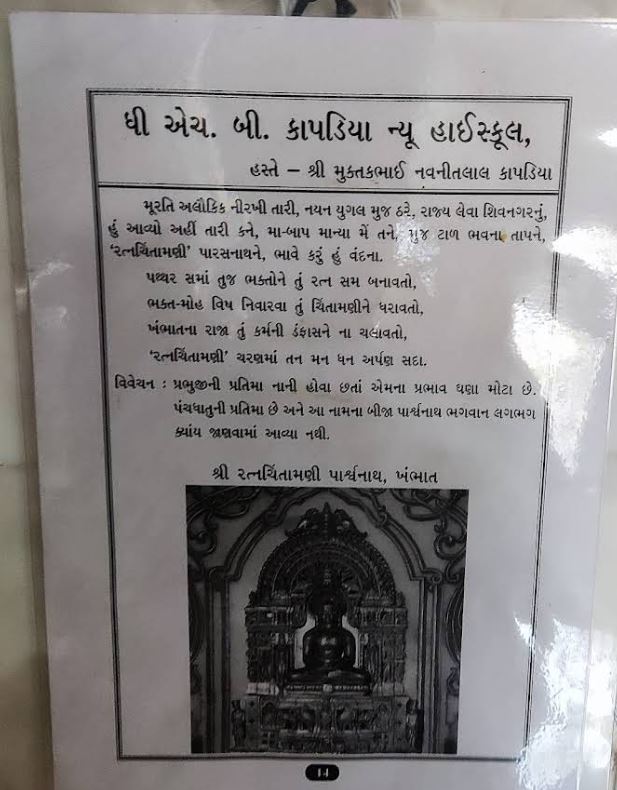 ધી એચ. બી. કાપડિયા ન્યૂ હાઈસ્કૂલ,
હસ્તે – શ્રી મુક્તકભાઈ નવનીતલાલ કાપડિયા
મૂરતિ અલૌકિક નીરખી તારી, નયન યુગલ મુજ ઠરે, રાજ્ય લેવા શિવનગરનું,
હું આવ્યો અહીં તારી કને, મા-બાપ માન્યા મેં તને, મુજ ટાળ ભવના તાપને,
‘રત્નચિંતામણી’ પારસનાથને, ભાવે કરું હું વંદના.
પથ્થર સમાં તુજ ભક્તોને તું રત્ન સમ બનાવતો,
ભક્ત-મોહ વિષ નિવારવા તું ચિંતામણીને ધરાવતો,
ખંભાતના રાજા તું કર્મની ડંફાસને ના ચલાવતો,
‘રત્નચિંતામણી’ ચરણમાં તન મન ધન અર્પણ સદા.
વિવેચન : પ્રભુજીની પ્રતિમા નાની હોવા છતાં એમના પ્રભાવ ઘણા મોટા છે.
પંચધાતુની પ્રતિમા છે અને આ નામના બીજા પાર્શ્વનાથ ભગવાન લગભગ
ક્યાંય જાણવામાં આવ્યા નથી.
શ્રી રત્નચિંતામણી પાર્શ્વનાથ, ખંભાત
14